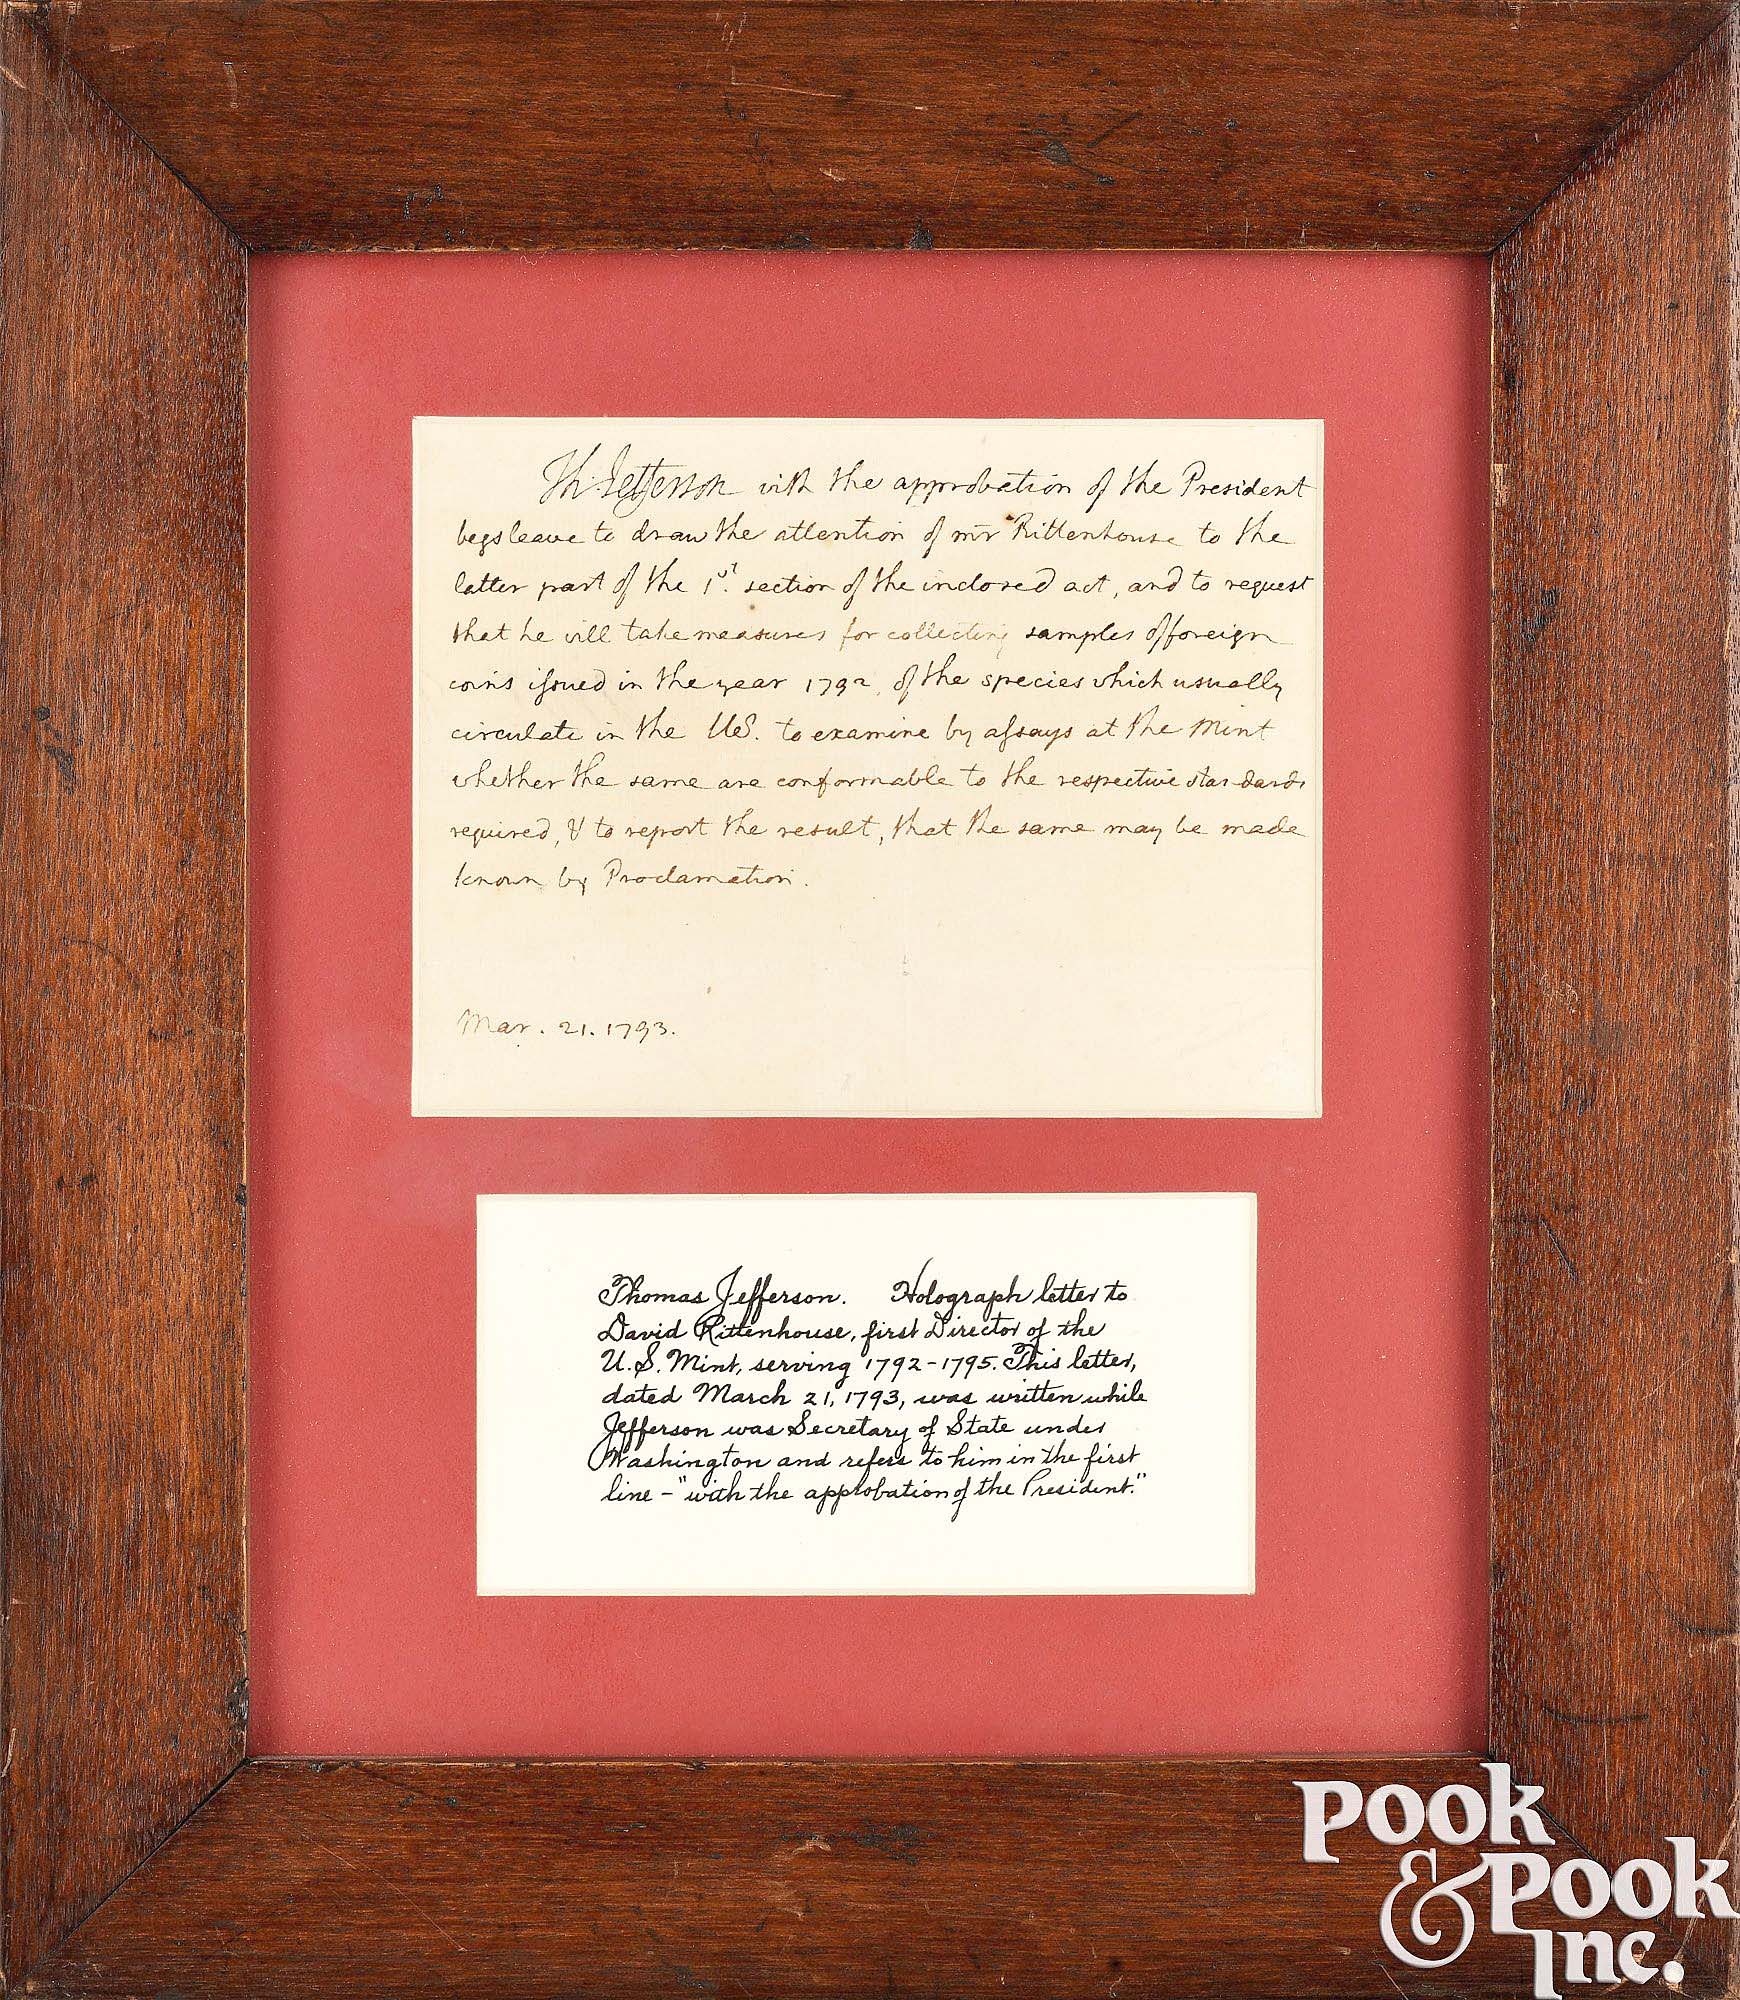 Th: Jefferson with the approbation of the President
begs leave to draw the attention of mr Rittenhouse to the
latter part of the 1st. section of the inclosed act, and to request
that he will take measures for collecting samples of foreign
coins issued in the year 1792, of the species which usually
circulate in the US. to examine by assays at the Mint
whether the same are conformable to the respective standards
required, & to report the result, that the same may be made
known by Proclamation.
Mar. 21. 1793.
Thomas Jefferson. Holograph letter to
David Rittenhouse, first Director of the
U.S. Mint, serving 1792-1795. This letter,
dated March 21, 1793, was written while
Jefferson was Secretary of State under
Washington and refers to him in the first
line - "with the approbation of the President."
Pook
& Pook
Inc.